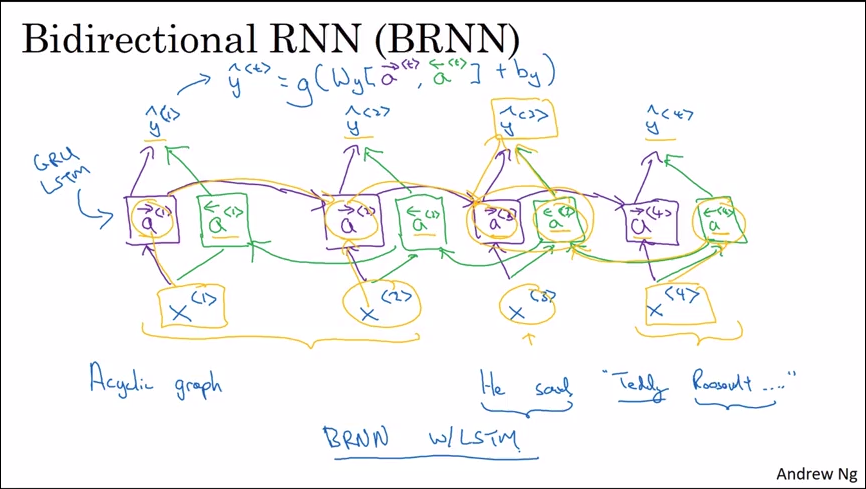 Bidirectional RNN (BRNN)
ŷ<t> = g(Wy[→a<t>, ←a<t>] + by)
ŷ<1> ŷ<2> ŷ<3> ŷ<4>
GRU
LSTM
→a<1> ←a<1> →a<2> ←a<2> →a<3> ←a<3> →a<4> ←a<4>
x<1> x<2> x<3> x<4>
Acyclic graph
He said "Teddy Roosevelt ...."
BRNN w/LSTM
Andrew Ng